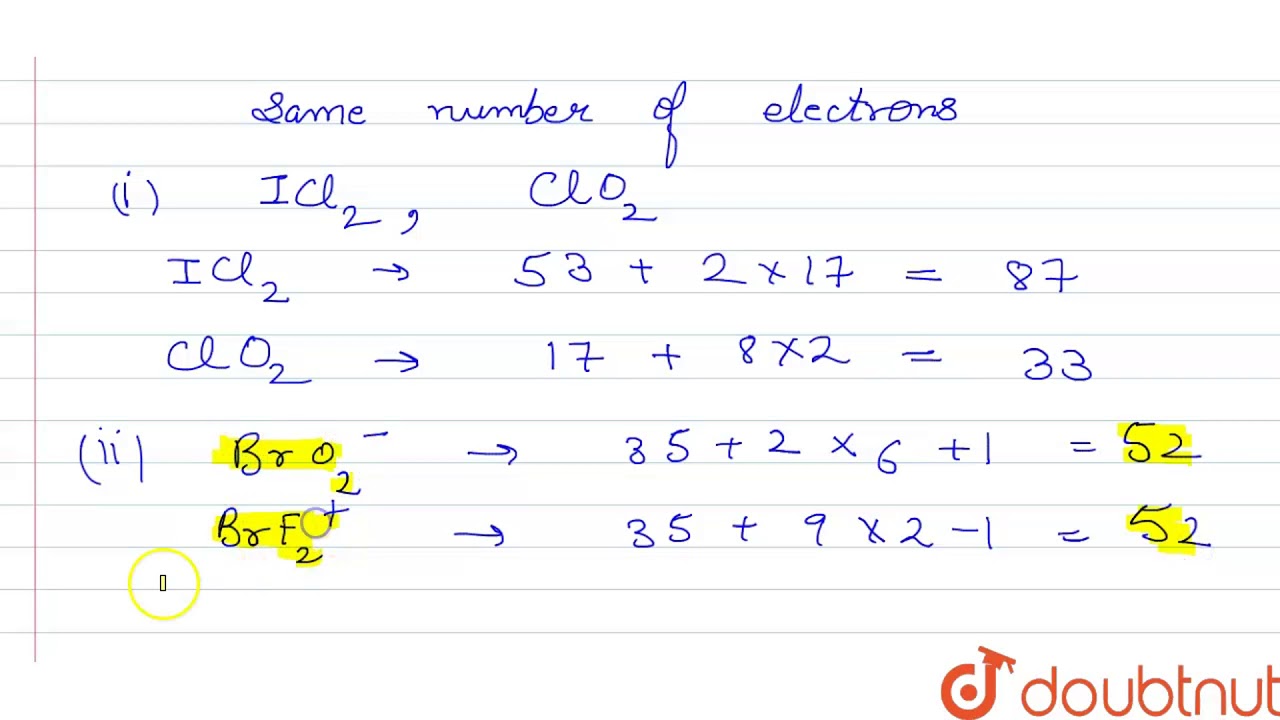 Same number of electrons
(i) ICl₂, ClO₂
ICl₂ → 53 + 2 × 17 = 87
ClO₂ → 17 + 8 × 2 = 33
(ii) BrO₂⁻ → 35 + 2 × 6 + 1 = 52
BrF₂⁺ → 35 + 9 × 2 - 1 = 52
doubtnut